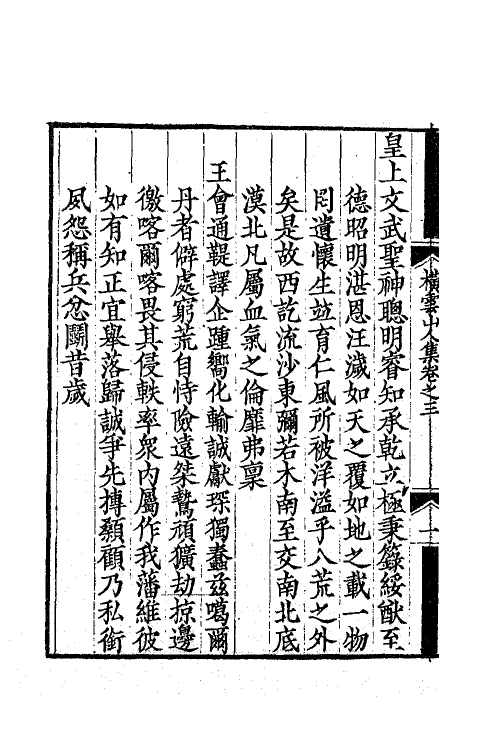 橫雲山人集卷之三
一
皇上文武聖神聰明睿知承乾立極秉籙綏猷至
德昭明湛恩汪濊如天之覆如地之載一物
罔遺懷生竝育仁風所被洋溢乎八荒之外
矣是故西訖流沙東彌若木南至交南北底
漠北凡屬血氣之倫靡弗稟
王會通鞮譯企踵嚮化輸誠獻琛獨蠢茲噶爾
丹者僻處窮荒自恃險遠桀驁頑獷劫掠邊
徼喀爾喀畏其侵軼率衆內屬作我藩維彼
如有知正宜舉落歸誠爭先摶顙顧乃私銜
夙怨稱兵忿鬭昔歲